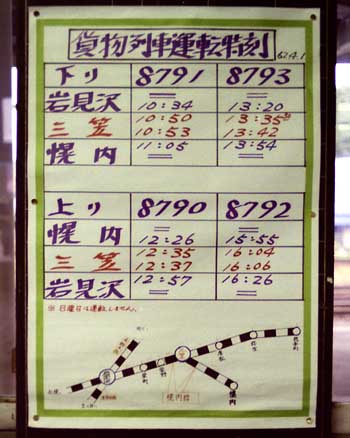 貨物列車運転時刻 62.4.1
下り 8791 8793
岩見沢 10:34 13:20
三笠 10:50 13:35
10:53 13:42
幌内 11:05 13:54
上り 8790 8792
幌内 12:26 15:55
三笠 12:35 16:04
12:37 16:06
岩見沢 12:57 16:26
※日曜日は運転しません。
幌内
幌内線